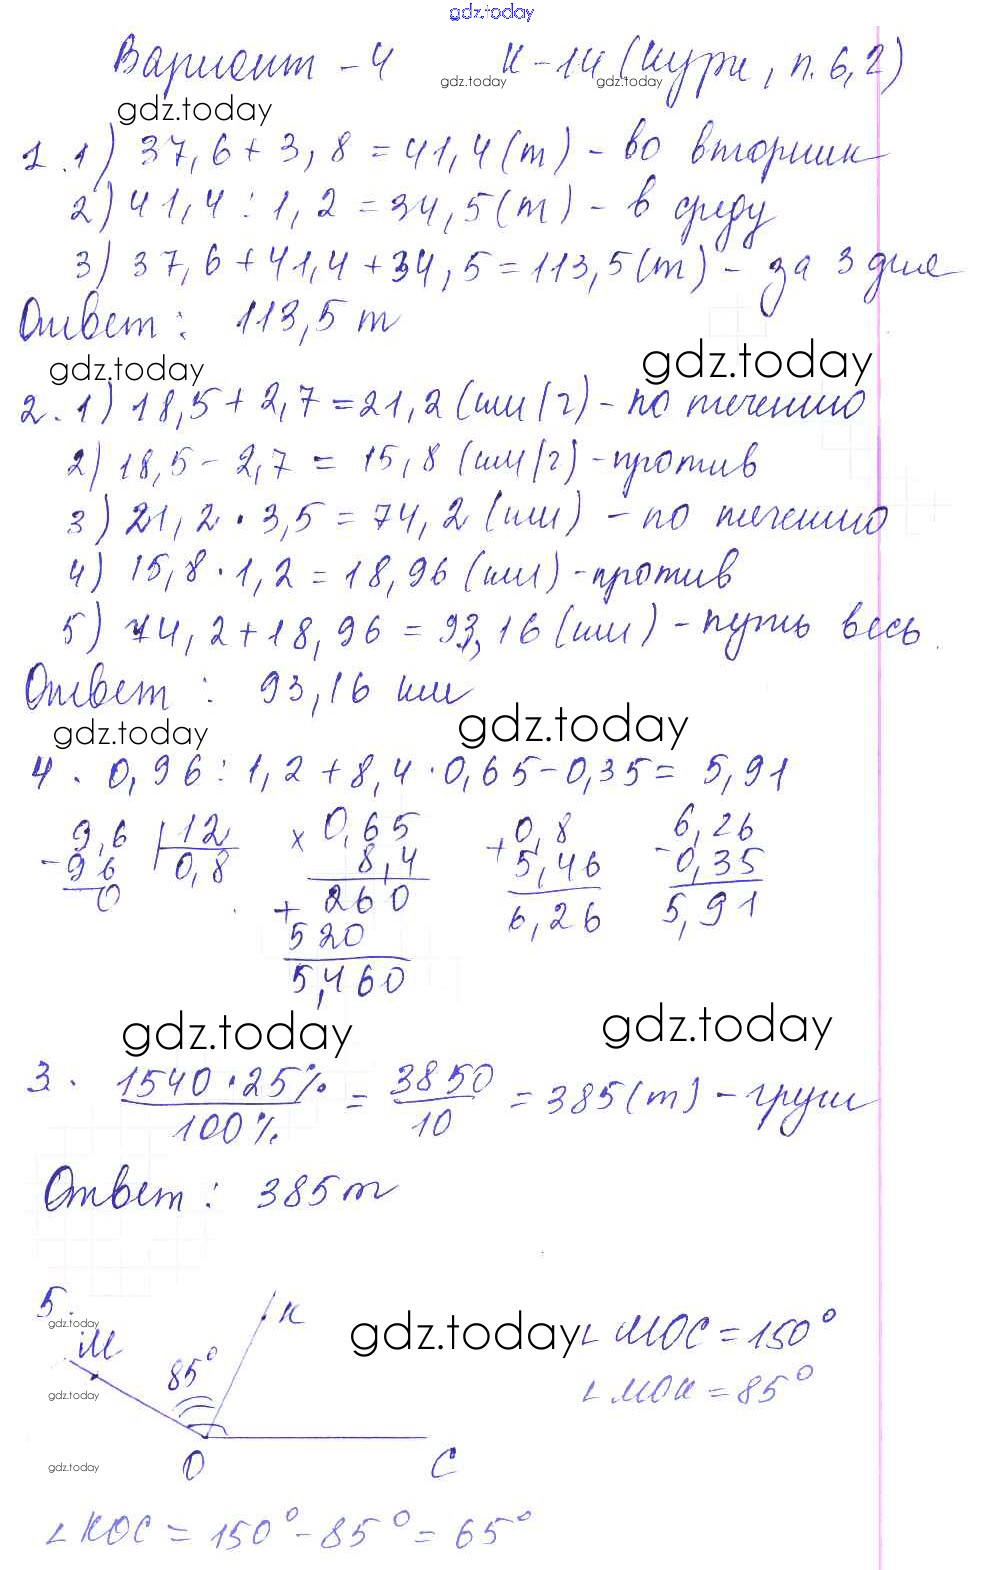 gdz.today
Вариант - 4 К - 14 (Курк, п. 6, 2)
gdz.today gdz.today
gdz.today
1. 1) 37,6 + 3,8 = 41,4 (т) - во вторник
2) 41,4 : 1,2 = 34,5 (т) - в среду
3) 37,6 + 41,4 + 34,5 = 113,5 (т) - за 3 дня
Ответ : 113,5 т
gdz.today gdz.today
2. 1) 18,5 + 2,7 = 21,2 (км/ч) - по течению
2) 18,5 - 2,7 = 15,8 (км/ч) - против
3) 21,2 · 3,5 = 74,2 (км) - по течению
4) 15,8 · 1,2 = 18,96 (км) - против
5) 74,2 + 18,96 = 93,16 (км) - путь весь.
Ответ : 93,16 км
gdz.today gdz.today
4. 0,96 : 1,2 + 8,4 · 0,65 - 0,35 = 5,91
9,6 | 12 × 0,65 + 0,8 6,26
- 96 0,8 8,4 5,46 - 0,35
0 + 260 6,26 5,91
520
5,460
gdz.today gdz.today
3. 1540 · 25% / 100% = 3850 / 10 = 385 (т) - груш
Ответ : 385 т
5.
gdz.today
М К
85°
gdz.today
gdz.today
О С
gdz.today
∠ МОС = 150°
∠ МОК = 85°
∠ КОС = 150° - 85° = 65°